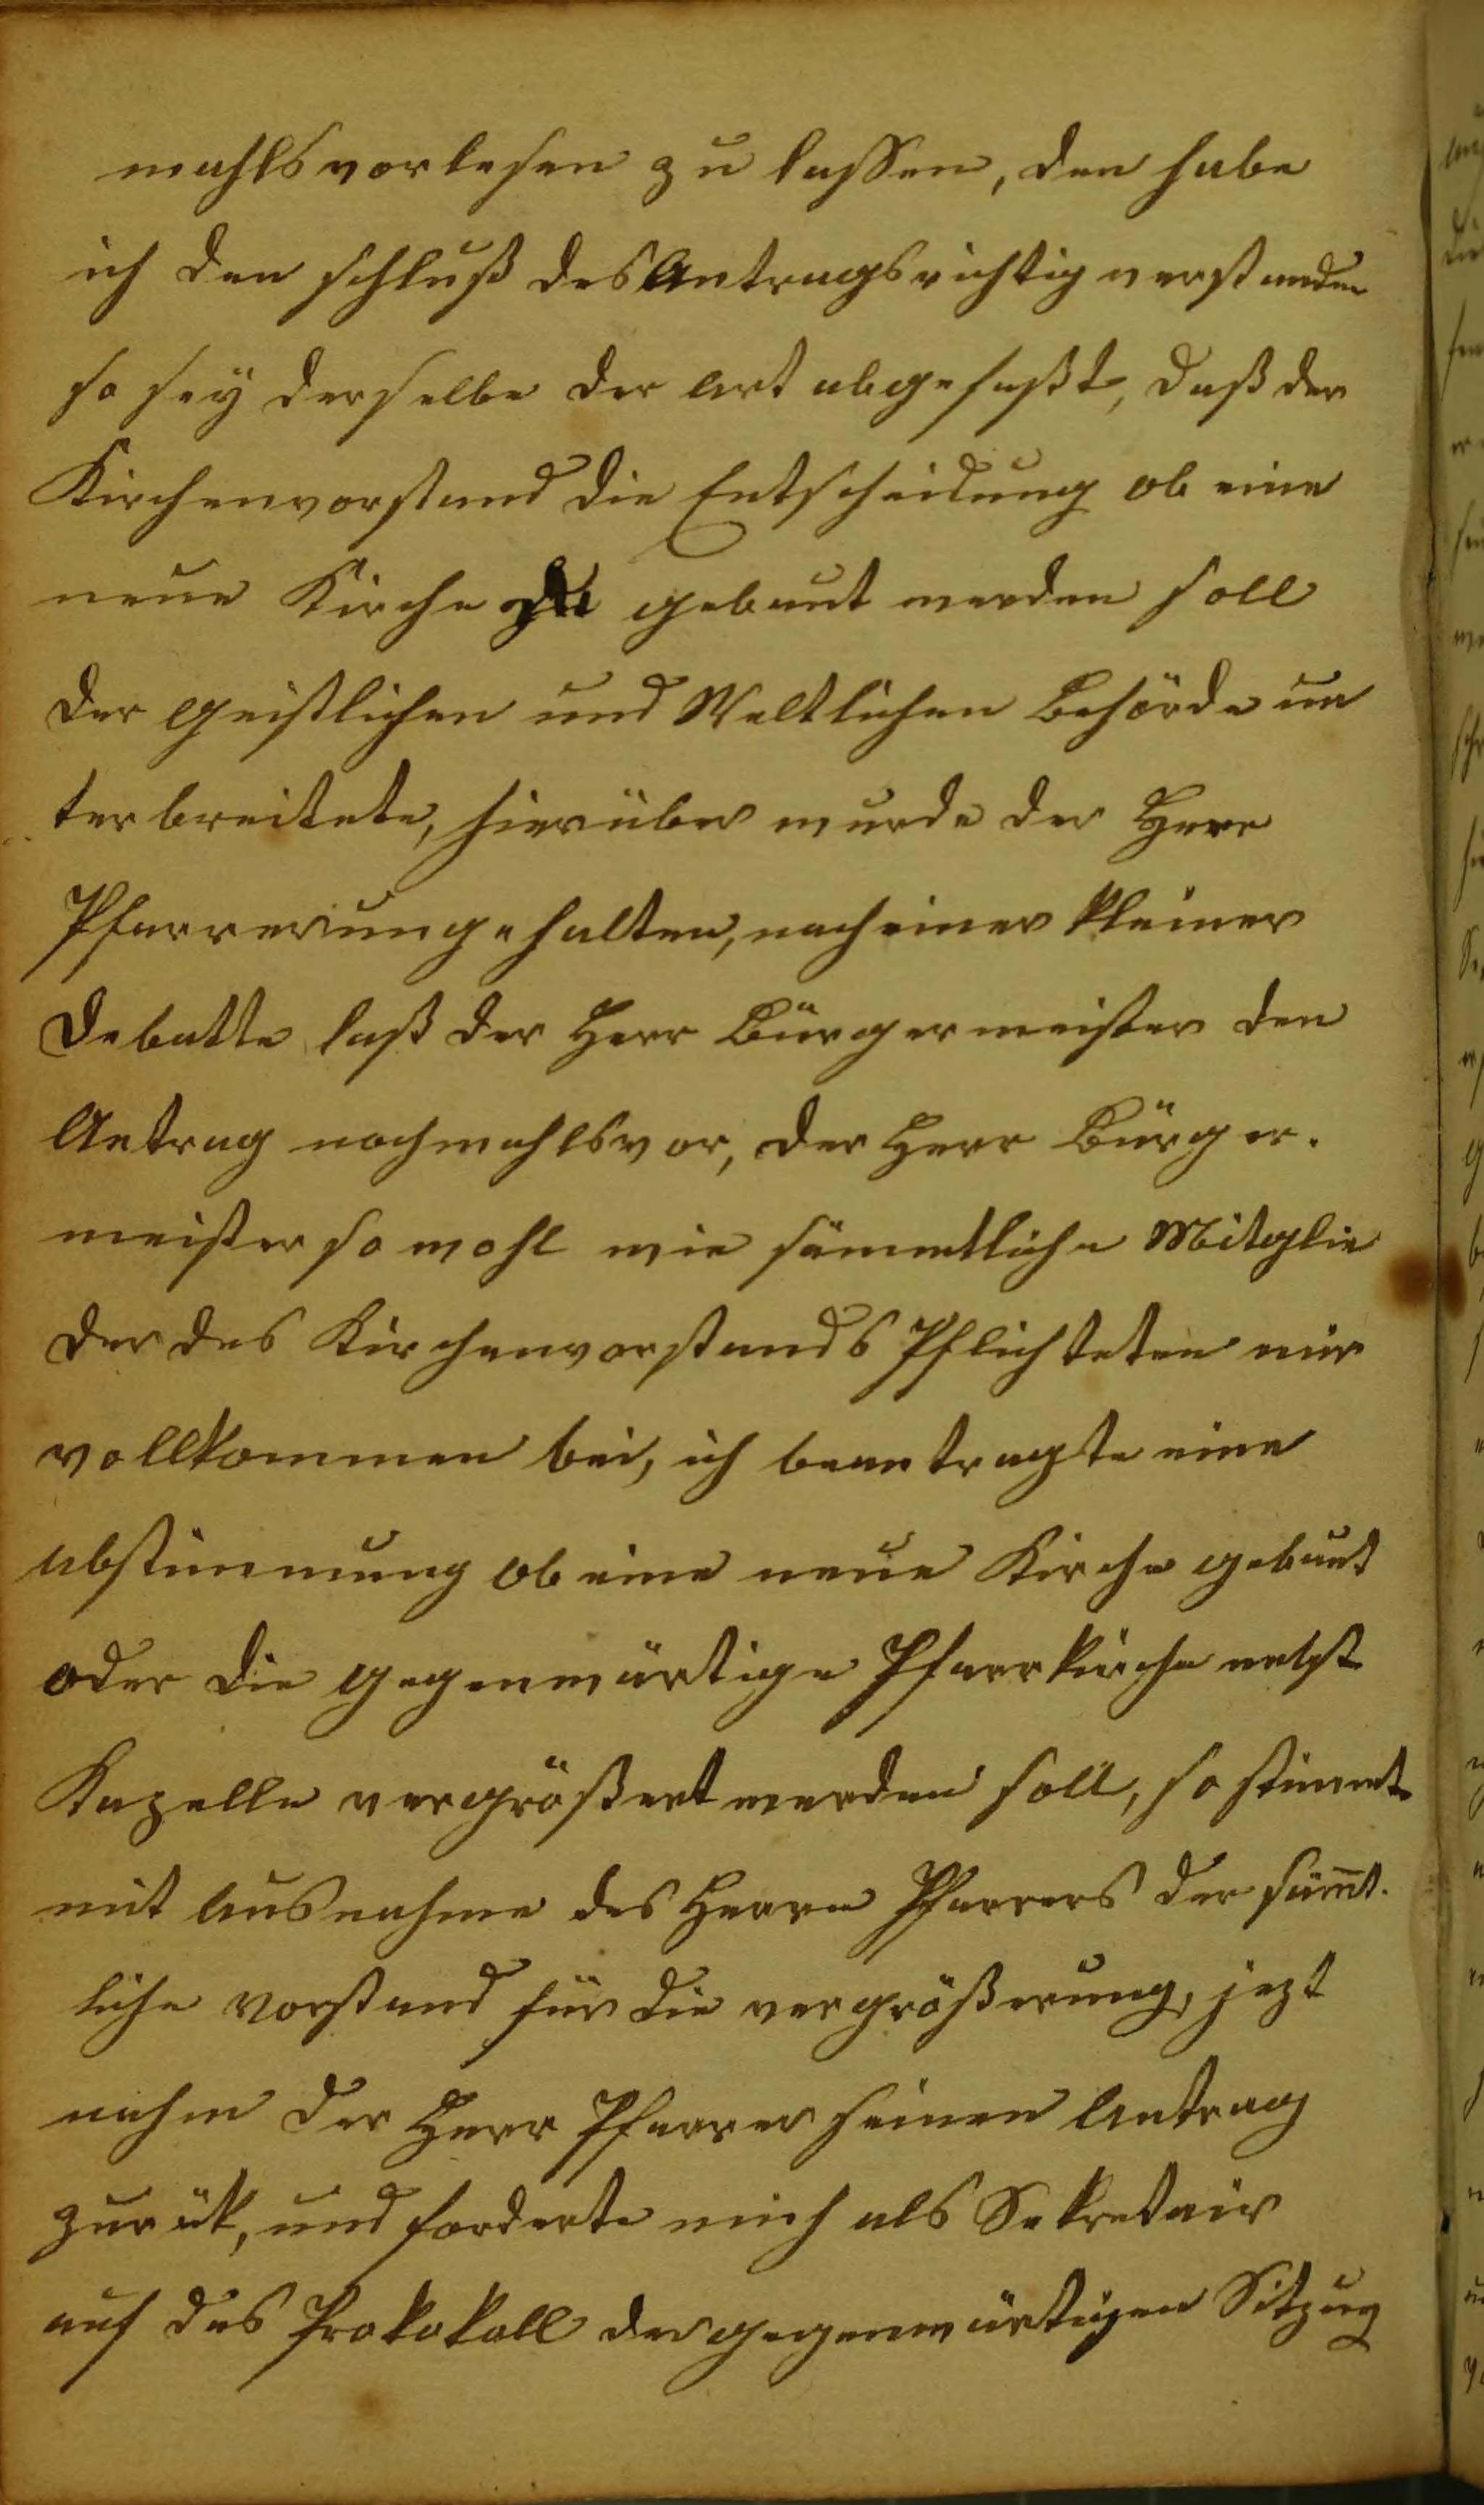 mahls vorlesen zu lassen, den habe
ich den schluß des Antrags richtig verstanden
so sey derselbe der art abgefaßt, daß der
Kirchenvorstand die Entscheidung ob eine
neue Kirche gebaut werden soll
der geistlichen und Weltlichen Behörde un
terbreitete, hierüber wurde der Herr
Pfarrer ungehalten, nach einer kleiner
Debatte laß der Herr Bürgermeister den
Antrag nochmahls vor, der Herr Bürger.
meister so wohl wie sämmtliche Mitglie
der des Kirchenvorstands Pflichteten mir
vollkommen bei, ich beantragte eine
abstimmung ob eine neue Kirche gebaut
oder die gegenwärtige Pfarrkirche nebst
Kapelle vergrößert werden soll, so stimmt
mit ausnahme des Herrn Pfarrers der säm̄t.
liche vorstand für die vergrößerung, jezt
nahm der Herr Pfarrer seinen antrag
zurük, und forderte mich als Sekretair
auf das Prokokoll der gegenwärtigen Sitzung